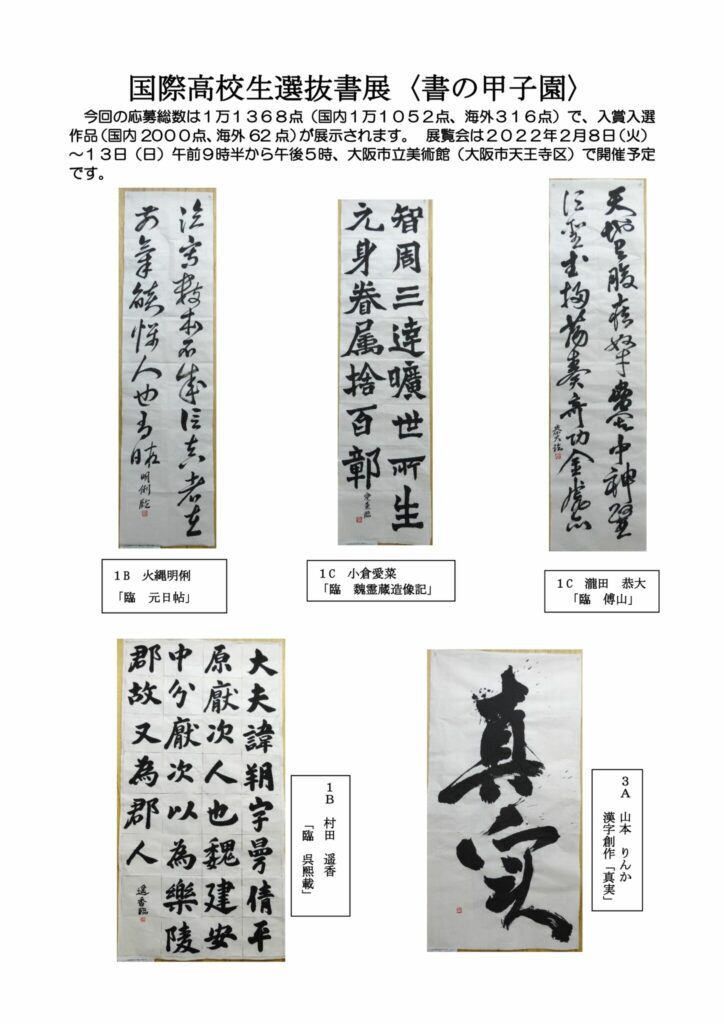 国際高校生選抜書展〈書の甲子園〉
今回の応募総数は１万１３６８点（国内１万１０５２点、海外３１６点）で、入賞入選
作品（国内２０００点、海外６２点）が展示されます。　展覧会は２０２２年２月８日（火）
～１３日（日）午前９時半から午後５時、大阪市立美術館（大阪市天王寺区）で開催予定
です。
臨寫數本不成信真者在
前氣焰懾人也有暇
明俐臨
１B　火縄明俐
「臨　元日帖」
智周三達曠世所生
元身眷属捨百鄣
愛菜臨
１C　小倉愛菜
「臨　魏霊蔵造像記」
恭大臨
１C　瀧田　恭大
「臨　傅山」
大夫諱朔字曼倩平
原厭次人也魏建安
中分厭次以為樂陵
郡故又為郡人
遥香臨
１B　村田　遥香
「臨　呉熙載」
真実
３A　山本　りんか
漢字創作「真実」